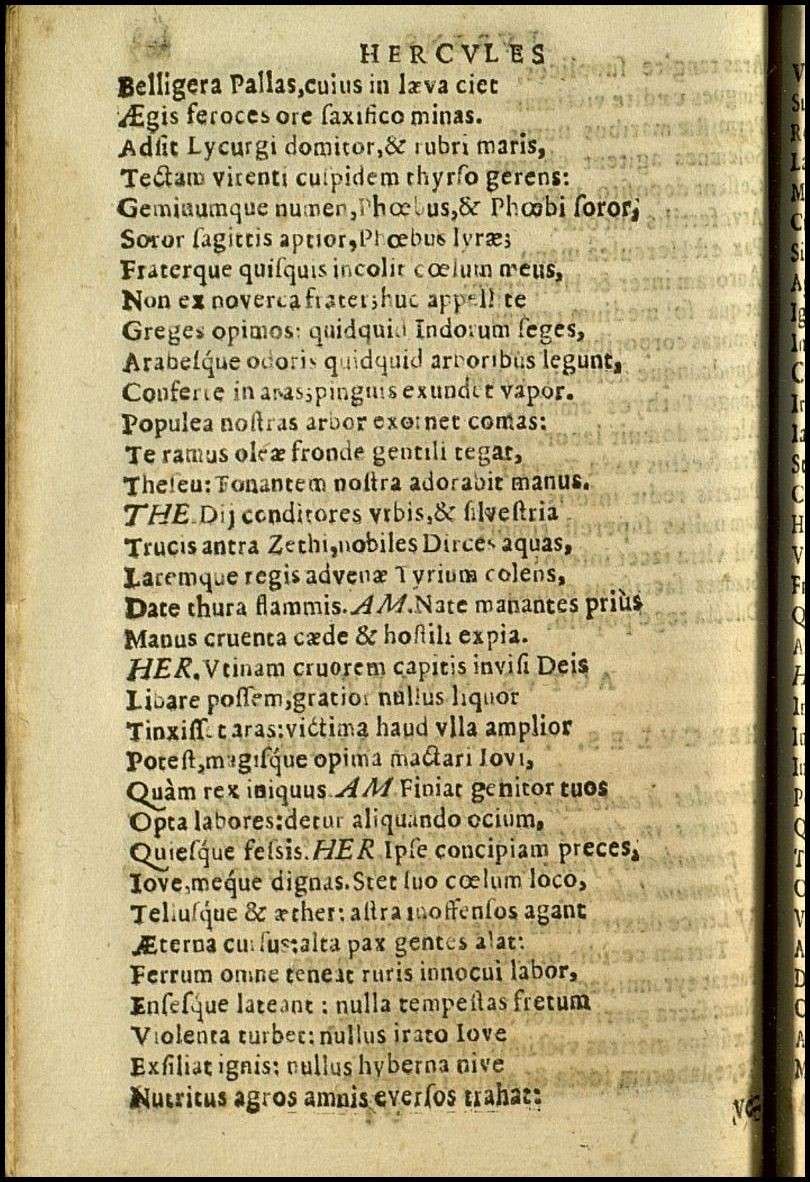 HERCVLES
Belligera Pallas,cuius in læva ciet
Ægis feroces ore ſaxifico minas.
Adſit Lycurgi domitor,& rubri maris,
Tectam virenti cuſpidem thyrſo gerens:
Geminumque numen,Phœbus,& Phœbi ſoror;
Soror ſagittis aptior,Phœbus lyræ;
Fraterque quiſquis incolit cœlum meus,
Non ex noverca frater;huc appellite
Greges opimos: quidquid Indorum ſeges,
Arabeſque odoris quidquid arboribus legunt,
Conferte in aras;pinguis exundet vapor.
Populea noſtras arbor exornet comas:
Te ramus oleæ fronde gentili tegat,
Theſeu:Tonantem noſtra adorabit manus.
THE.Dij conditores vrbis,& ſilveſtria
Trucis antra Zethi,nobiles Dirces aquas,
Laremque regis advenæ Tyrium colens,
Date thura flammis.AM.Nate manantes priùs
Manus cruenta cæde & hoſtili expia.
HER.Vtinam cruorem capitis inviſi Deis
Libare poſſem,gratior nullus liquor
Tinxiſſet aras:victima haud vlla amplior
Poteſt,magiſque opima mactari Iovi,
Quàm rex iniquus.AM Finiat genitor tuos
Opta labores:detur aliquando ocium,
Quieſque feſsis.HER Ipſe concipiam preces,
Iove,meque dignas.Stet ſuo cœlum loco,
Telluſque & æther:aſtra inoffenſos agant
Æterna curſus:alta pax gentes alat:
Ferrum omne teneat ruris innocui labor,
Enſeſque lateant : nulla tempeſtas fretum
Violenta turbet:nullus irato Iove
Exſiliat ignis: nullus hyberna nive
Nutritus agros amnis everſos trahat: